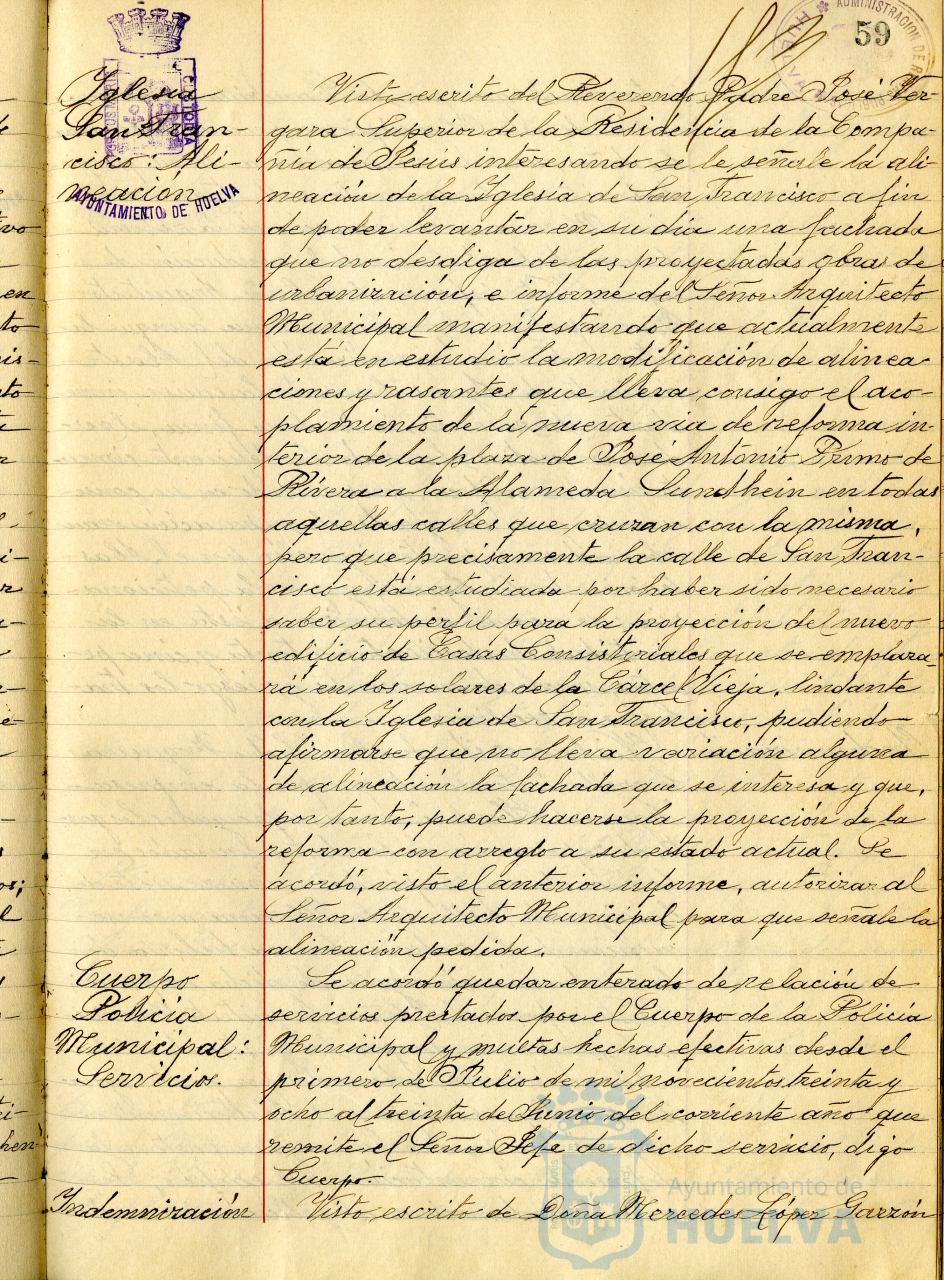 59
ADMINISTRACION DE
HUELVA
CUSTODIA
AYUNTAMIENTO DE HUELVA
Iglesia
San Fran-
cisco: Ali-
neación
Visto escrito del Reverendo Padre José Ver-
gara Superior de la Residencia de la Compa-
ñía de Jesus interesando se le señale la ali-
neación de la Iglesia de San Francisco a fin
de poder levantar en su dia una fachada
que no desdiga de las proyectadas obras de
urbanización, e informe del Señor Arquitecto
Municipal manifestando que actualmente
está en estudio la modificación de alinea-
ciones y rasantes que lleva consigo el aco-
plamiento de la nueva via de reforma in-
terior de la plaza de José Antonio Primo de
Rivera a la Alameda Sundhein en todas
aquellas calles que cruzan con la misma,
pero que precisamente la calle de San Fran-
cisco está estudiada por haber sido necesario
saber su perfil para la proyección del nuevo
edificio de Casas Consistoriales que se emplaza-
rá en los solares de la Cárcel Vieja, lindante
con la Iglesia de San Francisco, pudiendo
afirmarse que no lleva variación alguna
de alineación la fachada que se interesa y que,
por tanto, puede hacerse la proyección de la
reforma con arreglo a su estado actual. Se
acordó, visto el anterior informe, autorizar al
Señor Arquitecto Municipal para que señale la
alineación pedida.
Cuerpo
Policía
Municipal:
Servicios.
Se acordó quedar enterado de relación de
servicios prestados por el Cuerpo de la Policía
Municipal y multas hechas efectivas desde el
primero de Julio de mil novecientos treinta y
ocho al treinta de Junio del corriente año que
remite el Señor Jefe de dicho servicio, digo
Cuerpo.
Indemnización
Visto escrito de Doña Mercedes López Garzón
Ayuntamiento de
HUELVA